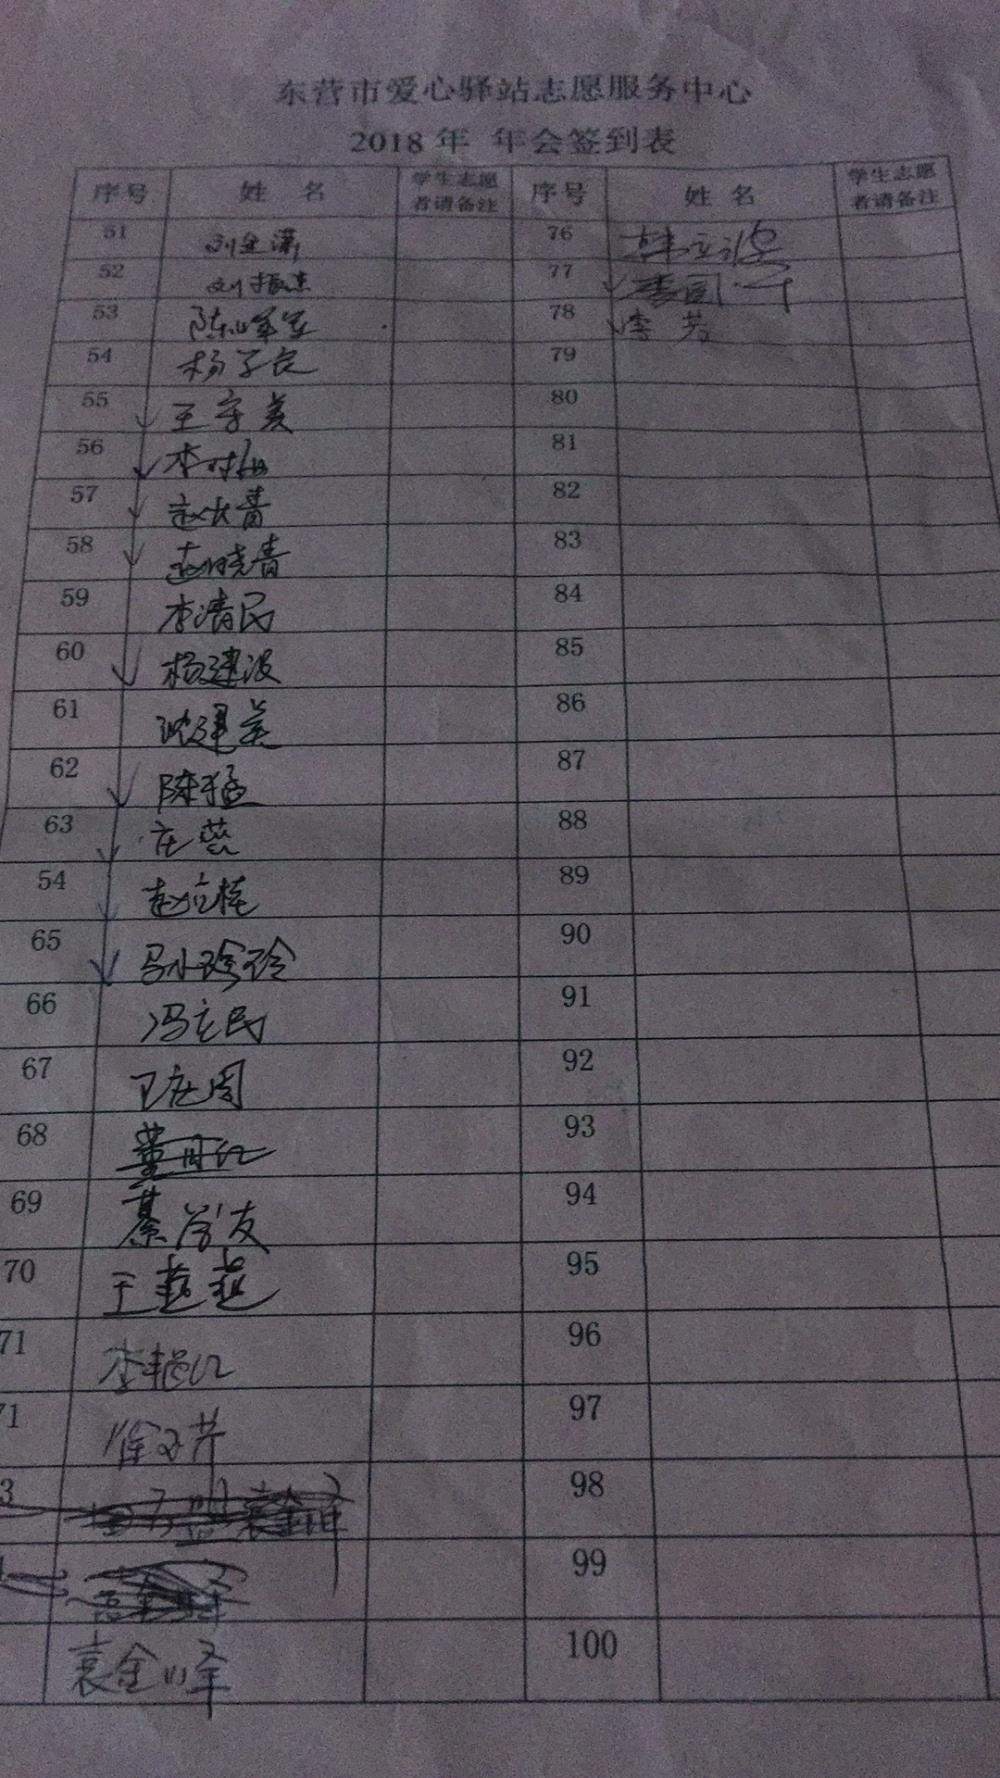 东营市爱心驿站志愿服务中心
2018 年 年会签到表
序号 姓 名 学生志愿者请备注 序号 姓 名 学生志愿者请备注
51 刘金潇 76
52 刘振杰 77
53 78 李芳
54 杨子良 79
55 王守美 80
56 81
57 赵长青 82
58 赵晓青 83
59 李清民 84
60 杨建波 85
61 沈建英 86
62 陈猛 87
63 庄蕊 88
54 赵立栋 89
65 90
66 冯立民 91
67 卫庄周 92
68 董月红 93
69 綦学友 94
70 王超超 95
71 李艳红 96
71 徐文芹 97
3 98
99
袁金峰 100